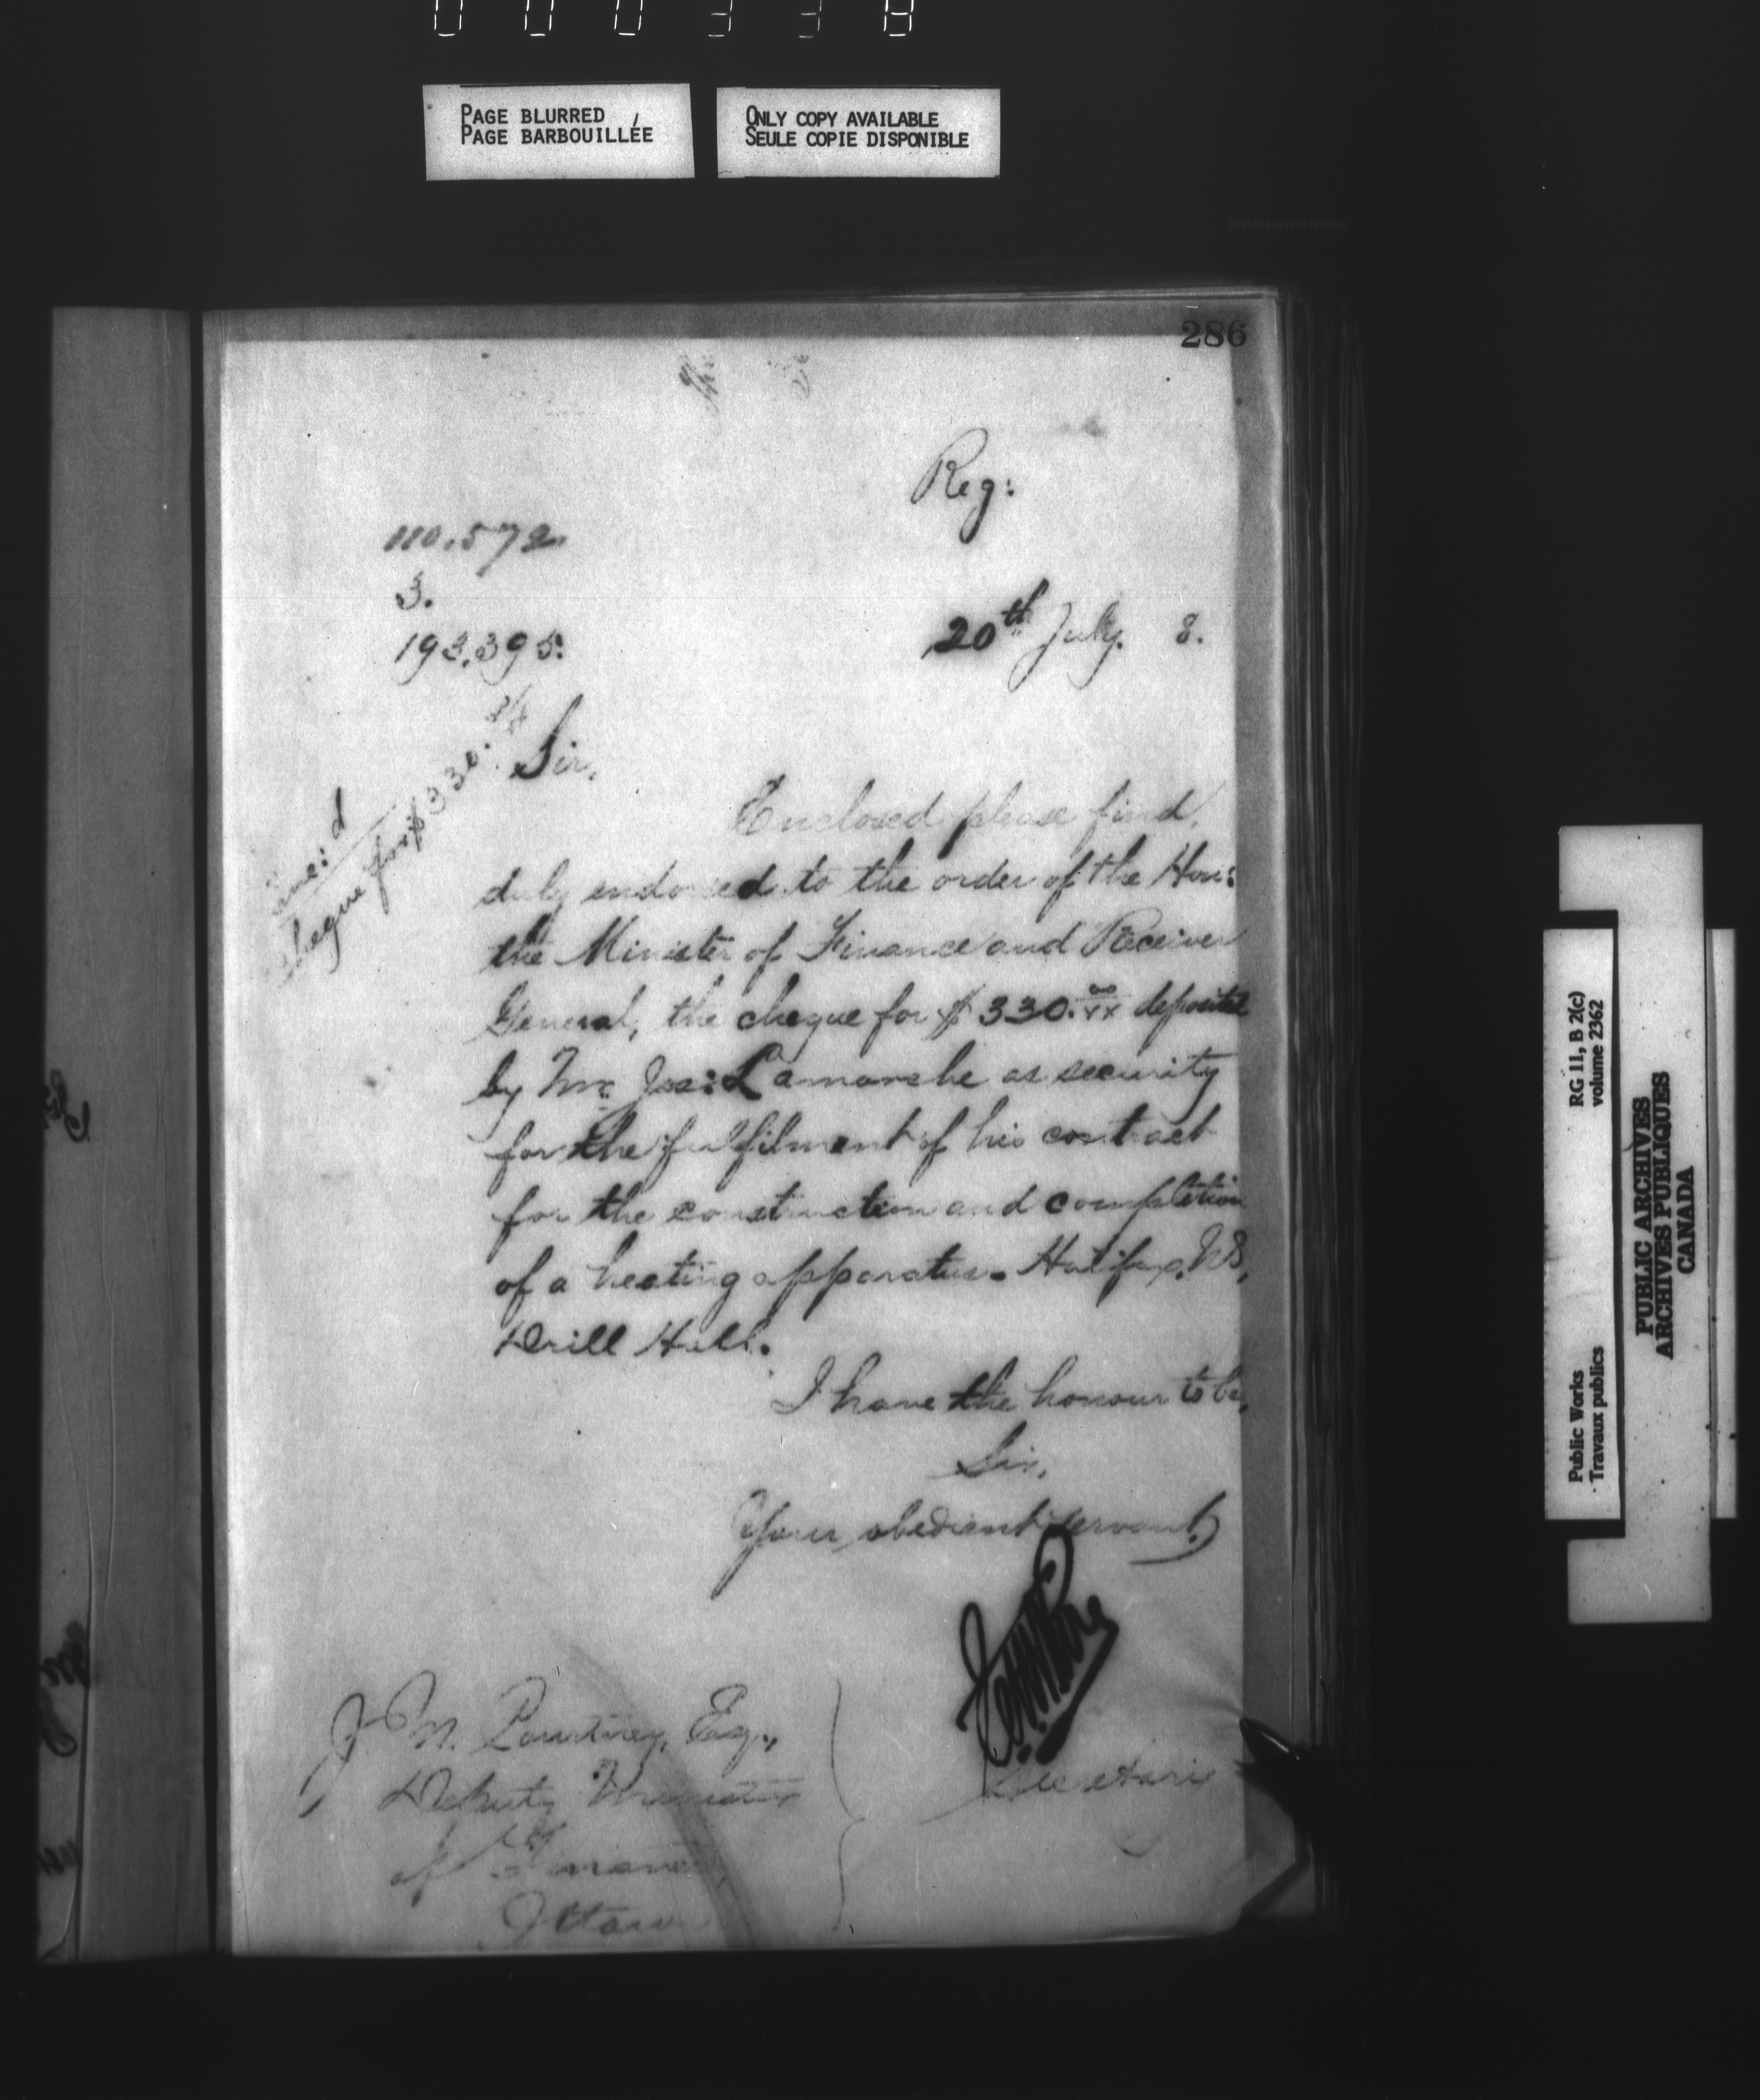 PAGE BLURRED
PAGE BARBOUILLÉE
ONLY COPY AVAILABLE
SEULE COPIE DISPONIBLE
286
Reg:
110.572
3.
193.395.
20th July. 8.
Cheque for $330.
Sir,
Enclosed please find,
duly endorsed to the order of the Hon:
the Minister of Finance and Receiver
General, the cheque for $330.00/xx deposited
by Mr. Jos: Lamarshe as security
for the fulfilment of his contract
for the construction and completion
of a heating apparatus. Halifax, N.S.,
Drill Hall.
I have the honour to be,
Sir,
Your obedient servant,
Secretary
J. M. Courtney, Esq.,
Deputy Minister
of Finance,
Ottawa
Public Works
Travaux publics
RG 11, B 2(c)
volume 2362
PUBLIC ARCHIVES
ARCHIVES PUBLIQUES
CANADA